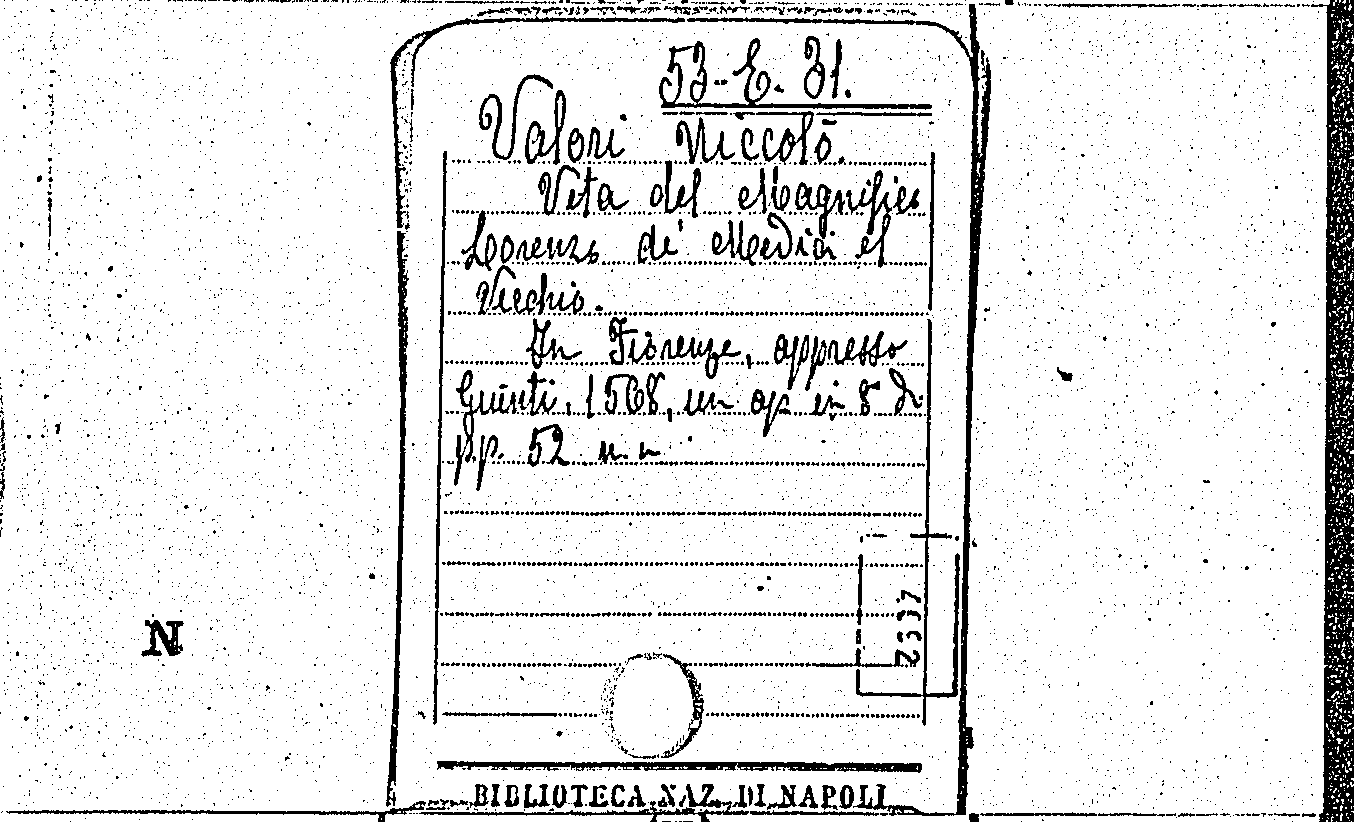 53-E. 31.
Valori Niccolò.
Vita del Magnifico
Lorenzo de' Medici el
Vecchio.
In Fiorenze, appresso
Giunti, 1568, un op in 8° di
pp. 52 n. n.
N
BIBLIOTECA NAZ. DI NAPOLI